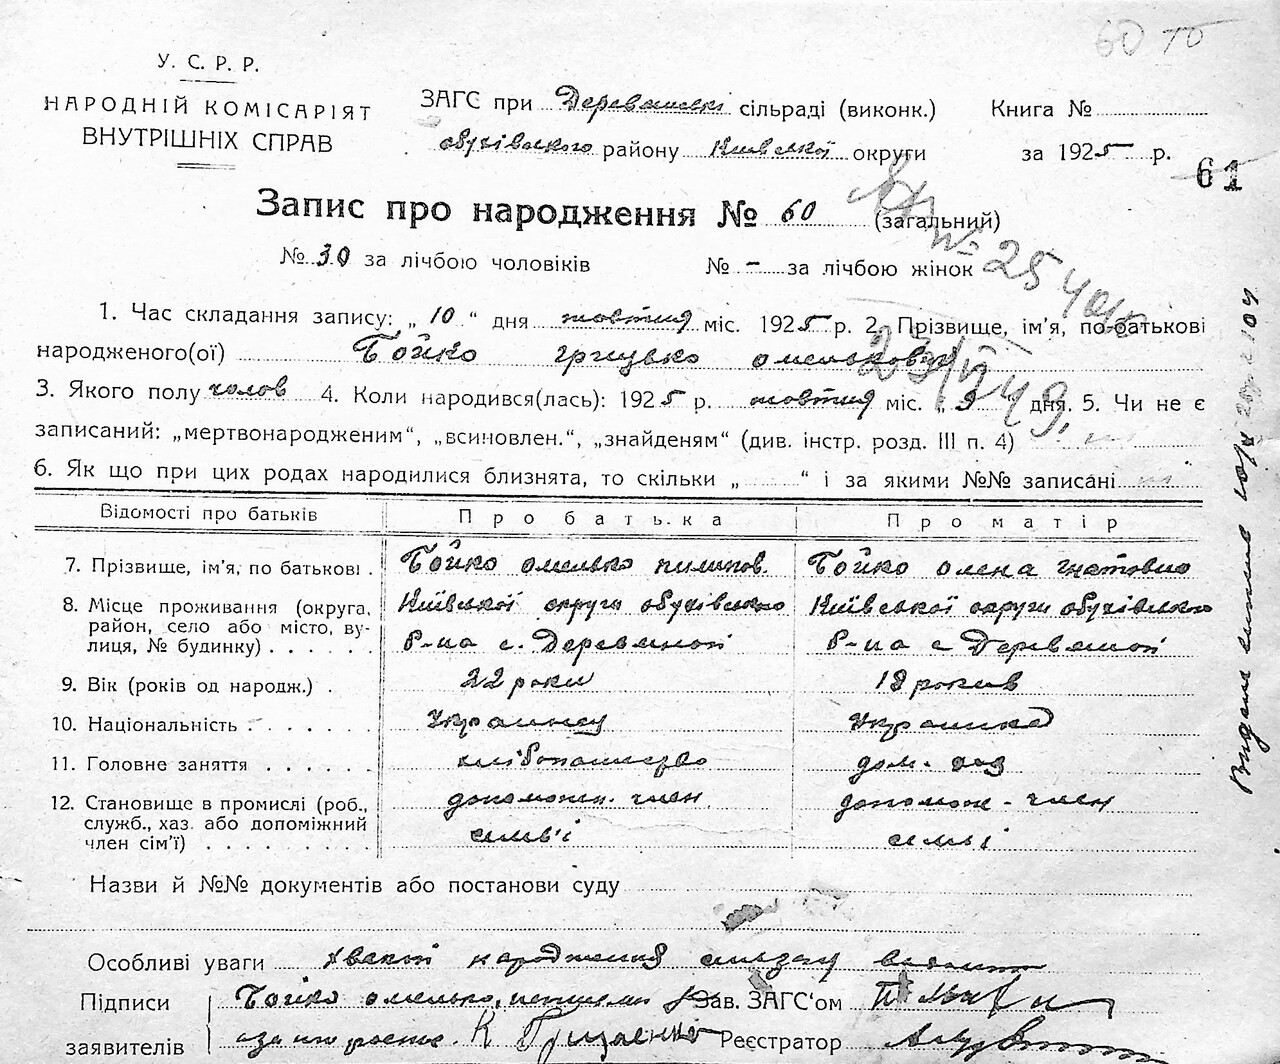 60
У. С. Р. Р.
НАРОДНІЙ КОМІСАРІЯТ
ВНУТРІШНІХ СПРАВ
ЗАГС при Деревянські сільраді (виконк.)
Обухівського району Київської округи
Книга №
за 1925 р.
61
Запис про народження № 60 (загальний)
№ 30 за лічбою чоловіків № – за лічбою жінок
№ 25
1. Час складання запису: „ 10 “ дня жовтня міс. 1925 р. 2. Прізвище, ім'я, по-батькові
народженого(ої) Бойко Грицько Омелькович
3. Якого полу чолов 4. Коли народився(лась): 1925 р. жовтня міс. „ 9 дня. 5. Чи не є
записаний: „мертвонародженим“, „всиновлен.“, „знайденям“ (див. інстр. розд. III п. 4)
6. Як що при цих родах народилися близнята, то скільки „ “ і за якими №№ записані
Відомості про батьків Про батька Про матір
7. Прізвище, ім'я, по батькові . Бойко Омелько Пилипов. Бойко Олена Гнатовна
8. Місце проживання (округа, Київської округи Обухівсько Київської округи Обухівсько
район, село або місто, ву- Р-на с. Деревяной Р-на с Деревяной
лиця, № будинку) . . . . . .
9. Вік (років од народж.) . 22 роки 18 років
10. Національність . . . . . . . украинец украинка
11. Головне заняття . . . . . . хлібопашество дом. хоз
12. Становище в промислі (роб., допоможн. член допомож - член
служб., хаз. або допоміжний семьї семьї
член сім'ї) . . . . . . . . .
Назви й №№ документів або постанови суду
Особливі уваги народження
Підписи Бойко Омелько, Зав. ЗАГС'ом
заявителів К Грищенко Реєстратор